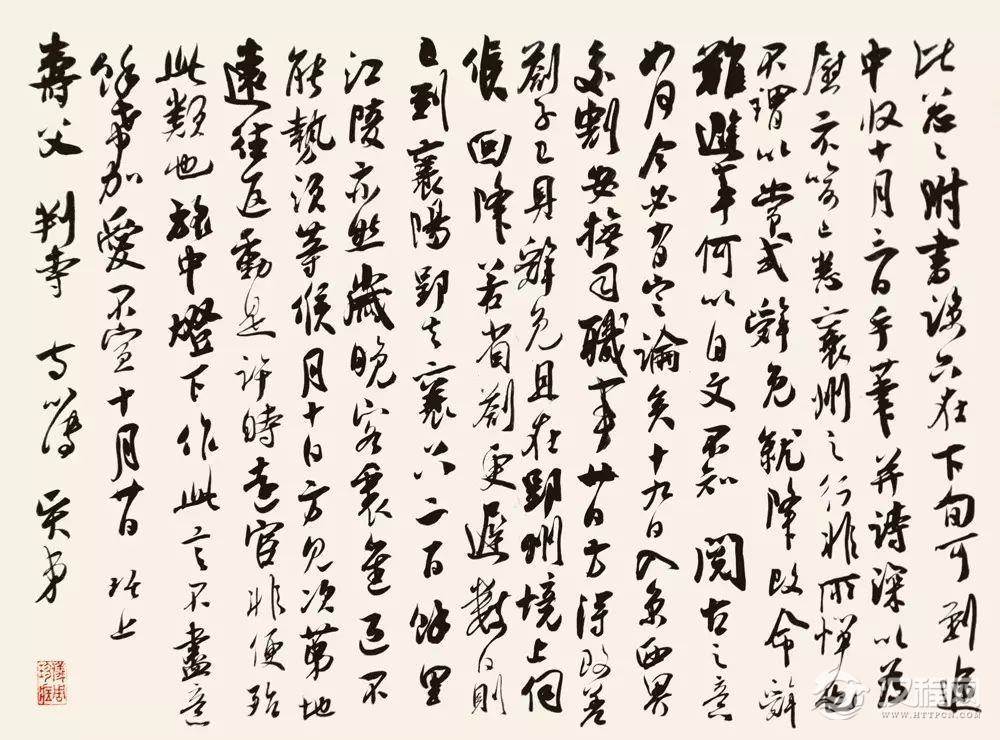 比忽忽附書只在下旬可到近
中收十月三日手筆并詩深以為
慰襄州之行非所憚也
不謂以當式辭免就降改命辭
難避事何以自文不知 閱古之意
如何今必有定論矣十九日入京西界
交割安撫司職事廿日方得改差
劄子已具辭免且在郢州境上伺
候 回降若省劄更遲數日則
已到襄陽郢去襄只二百餘里
江陵亦然歲晚客裏不
能須等候月十日方見次第地
遠往返動是許時遠宦非便殆
此類也旅中燈下作此言不盡意
餘希加愛不宣十月廿日 上
壽父 判寺 寺簿 賢弟
汉程网
WWW.HTTPCN.COM